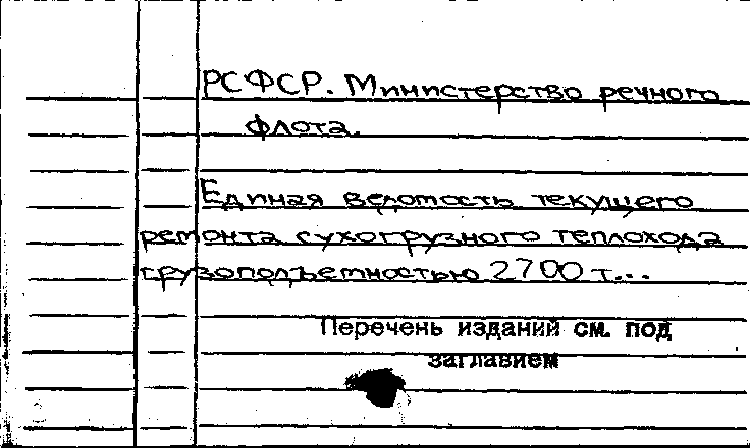 РСФСР. Министерство речного
флота.
Единая ведомость текущего
ремонта сухогрузного теплохода
грузоподъемностью 2700 т...
Перечень изданий см. под
заглавием